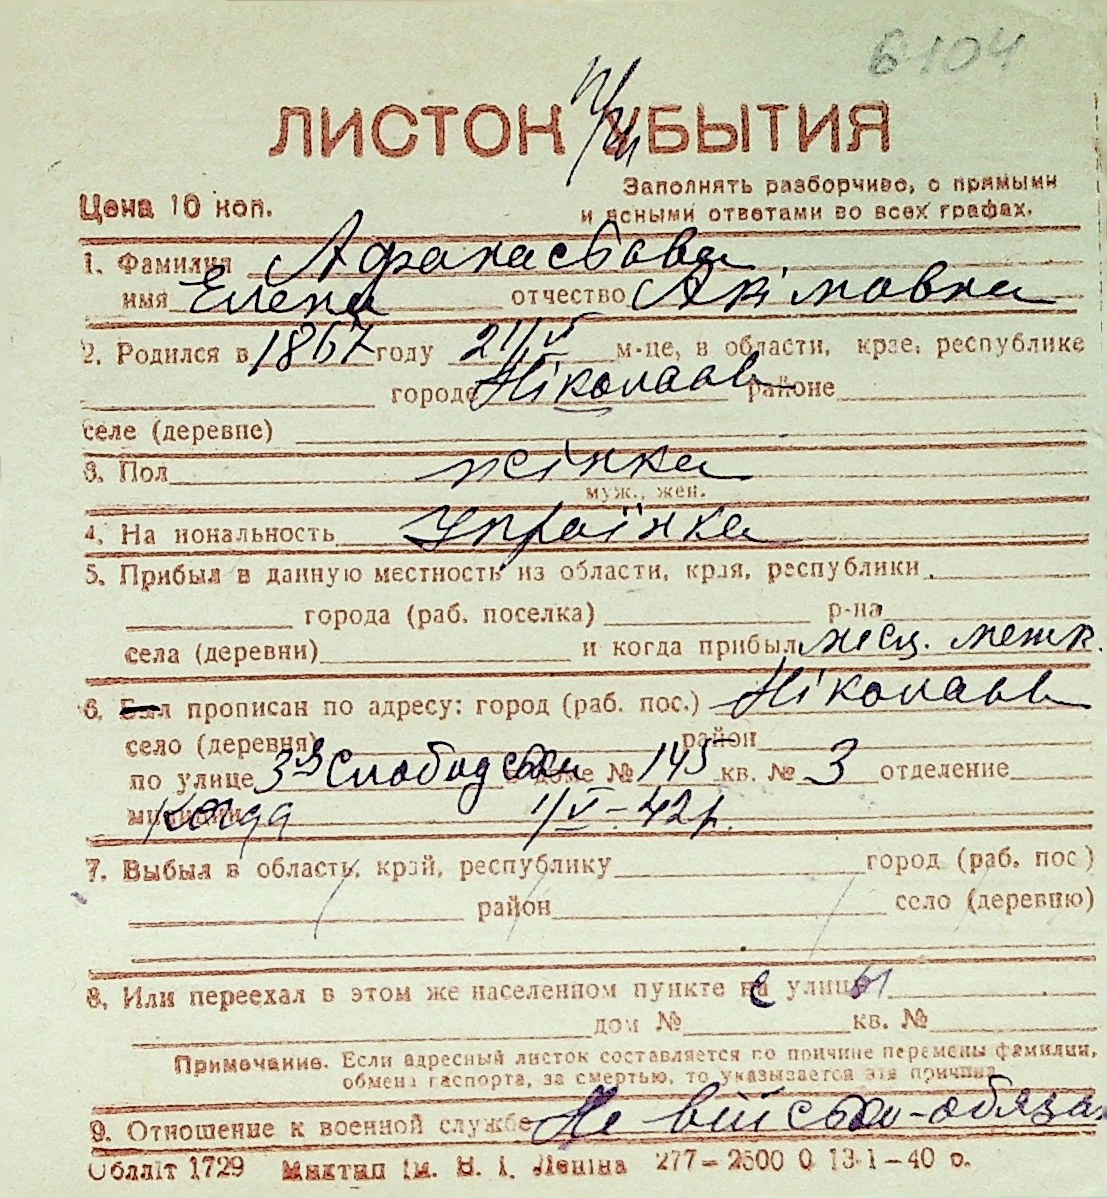 6104
ЛИСТОК УБЫТИЯ
Цена 10 коп.
Заполнять разборчиво, с прямыми
и ясными ответами во всех графах.
1. Фамилия Афанасьева
имя Елена отчество Акімовна
2. Родился в 1867 году 21/V м-це, в области, крае, республике
городе Ніколаев районе
селе (деревне)
3. Пол жінка
муж., жен.
4. На иональность Українка
5. Прибыл в данную местность из области, края, республики
города (раб. поселка) р-на
села (деревни) и когда прибыл місц. меж.
6. Был прописан по адресу: город (раб. пос.) Ніколаев
село (деревня) район
по улице 3я Слободская доме № 145 кв. № 3 отделение
милиции Когда 1/V-42р.
7. Выбыл в область, край, республику город (раб. пос)
район село (деревню)
8. Или переехал в этом же населенном пункте с улицы
дом № кв. №
Примечание. Если адресный листок составляется по причине перемены фамилии,
обмена паспорта, за смертью, то указывается эта причина
9. Отношение к военной службе Не військово-обяза
Обллiт 1729 Миктип iм. В. І. Ленiна 277-2500 0 13 1-40 р.